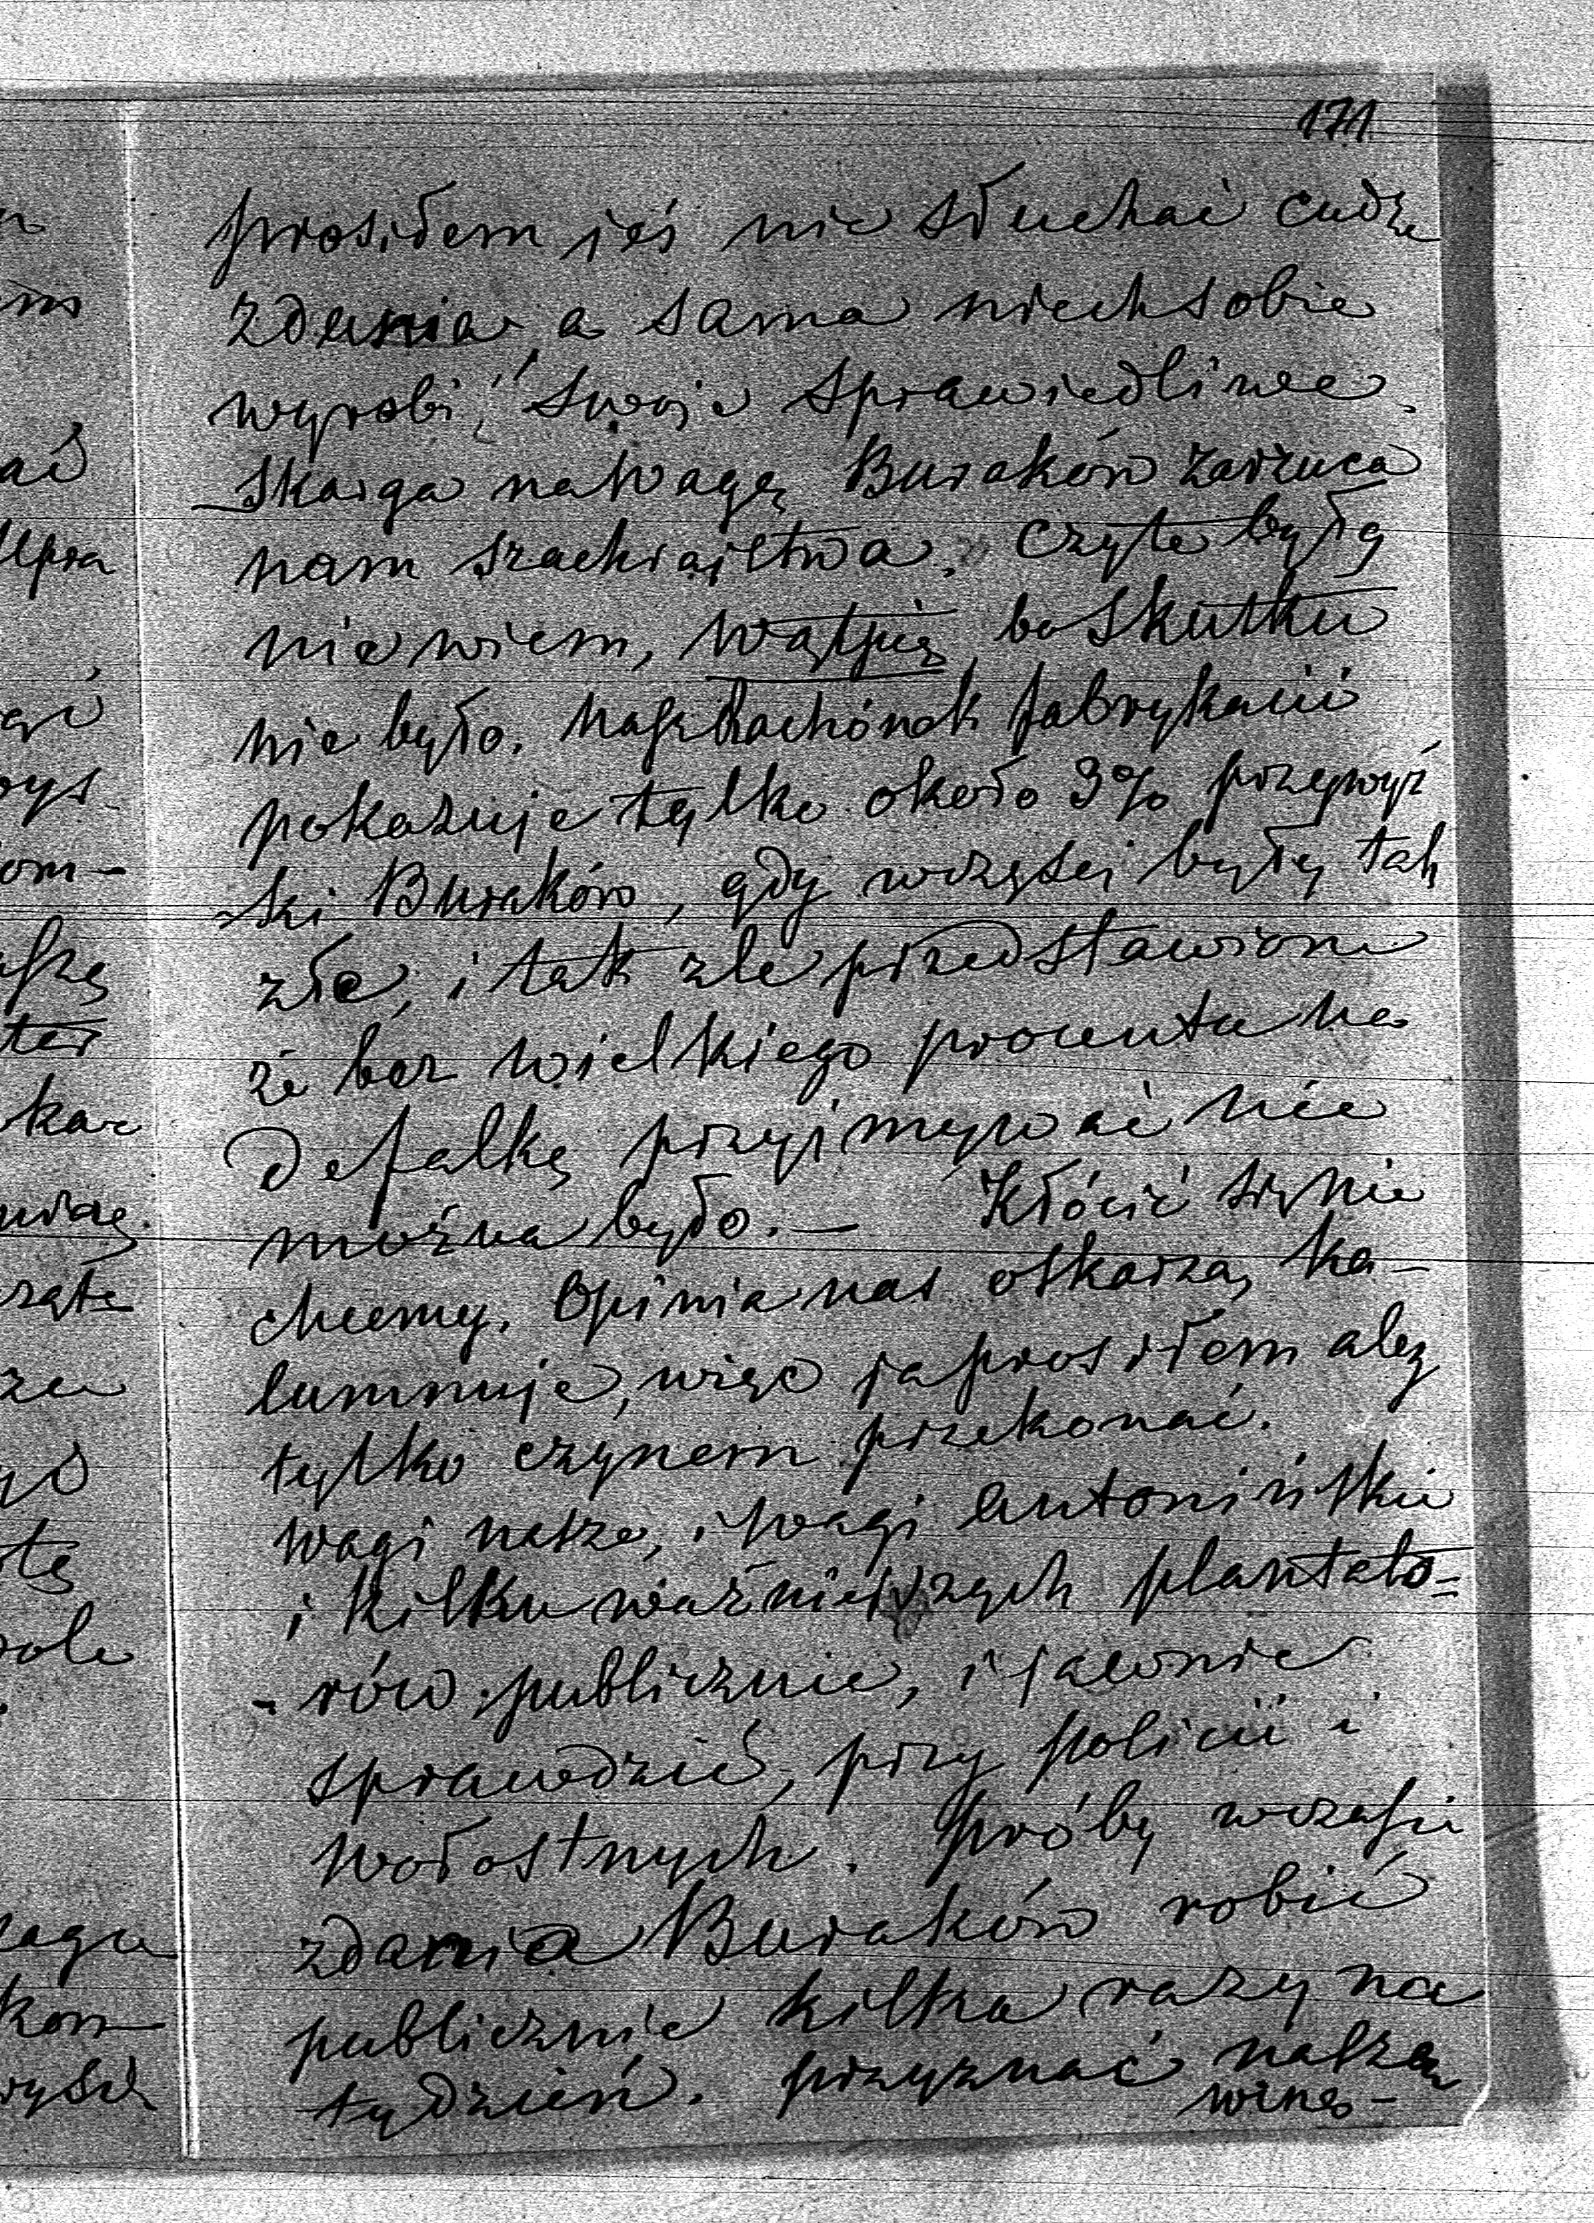 171
prosiłem jéj nie słuchać cudze
zdania, a sama niech sobie
wyrobi, swoje sprawiedliwe.
Skarga na wagę Buraków zarzuca
nam szachrajstwa. Czy te były
nie wiem, wątpię, bo skutku
nie było. Nasz rachónek fabrykacii
pokazuje tylko około 3% przewyż
-ski Buraków, gdy wczęsci były tak
złe, i tak zle przedstawione
że bez wielkiego procentu na
defalkę przyjmywać nie
można było. — Kłócić się nie
chcemy. Opinia nas oskarza, ka-
lumnuje, więc ja prosiłem aby
tylko czynem przekonać.
Wagi nasze, i wagi Antonińskie
i kilku ważniejszych plantato-
-rów publicznie, i jawnie
sprawdzić, przy policii i
wołostnych. Próby wczasie
zdania Buraków robić
publicznie kilka razy na
tydzień. przyznać naszą
winę -
ać
kar
om-
żą